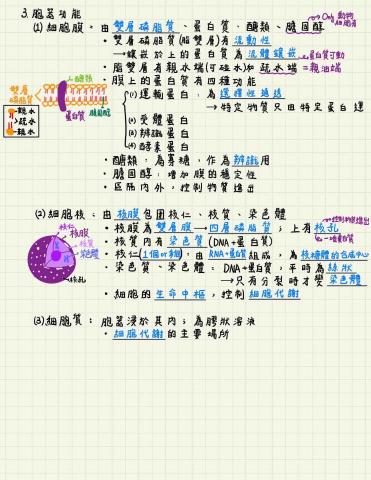 3. 胞器功能
(1) 細胞膜：由雙層磷脂質、蛋白質、醣類、膽固醇 → Only 動物細胞有
• 雙層磷脂質(脂雙層)有流動性
→鑲嵌於上的蛋白質為流體鑲嵌 →蛋白質可動
• 脂雙層有親水端(可碰水)和疏水端 =親油端
• 膜上的蛋白質有四種功能
(1) 運輸蛋白：為選擇性通透
→特定物質只由特定蛋白運
(2) 受體蛋白
(3) 辨識蛋白
(4) 酵素蛋白
雙層磷脂質
醣類
蛋白質
膽固醇
親水
疏水
親水
• 醣類：為寡糖，作為辨識用
• 膽固醇：增加膜的穩定性
• 區隔內外，控制物質進出
(2) 細胞核：由核膜包圍核仁、核質、染色體
• 核膜為雙層膜→四層磷脂質；上有核孔 →控制物質進出
• 核質內有染色質(DNA+蛋白質)
• 核仁(1個or多個)，由RNA+蛋白質組成，為核糖體的合成中心
• 染色質、染色體：DNA+蛋白質，平時為絲狀
→只有分裂時才變染色體
• 細胞的生命中樞，控制細胞代謝
核仁
核膜
核質
染色體
核孔
(3) 細胞質：胞器浸於其內；為膠狀溶液
• 細胞代謝的主要場所